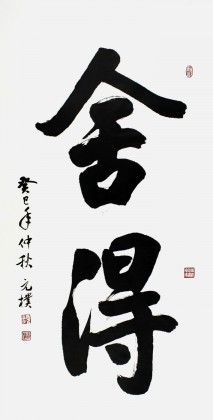 舍得
癸巳年仲秋 元樸